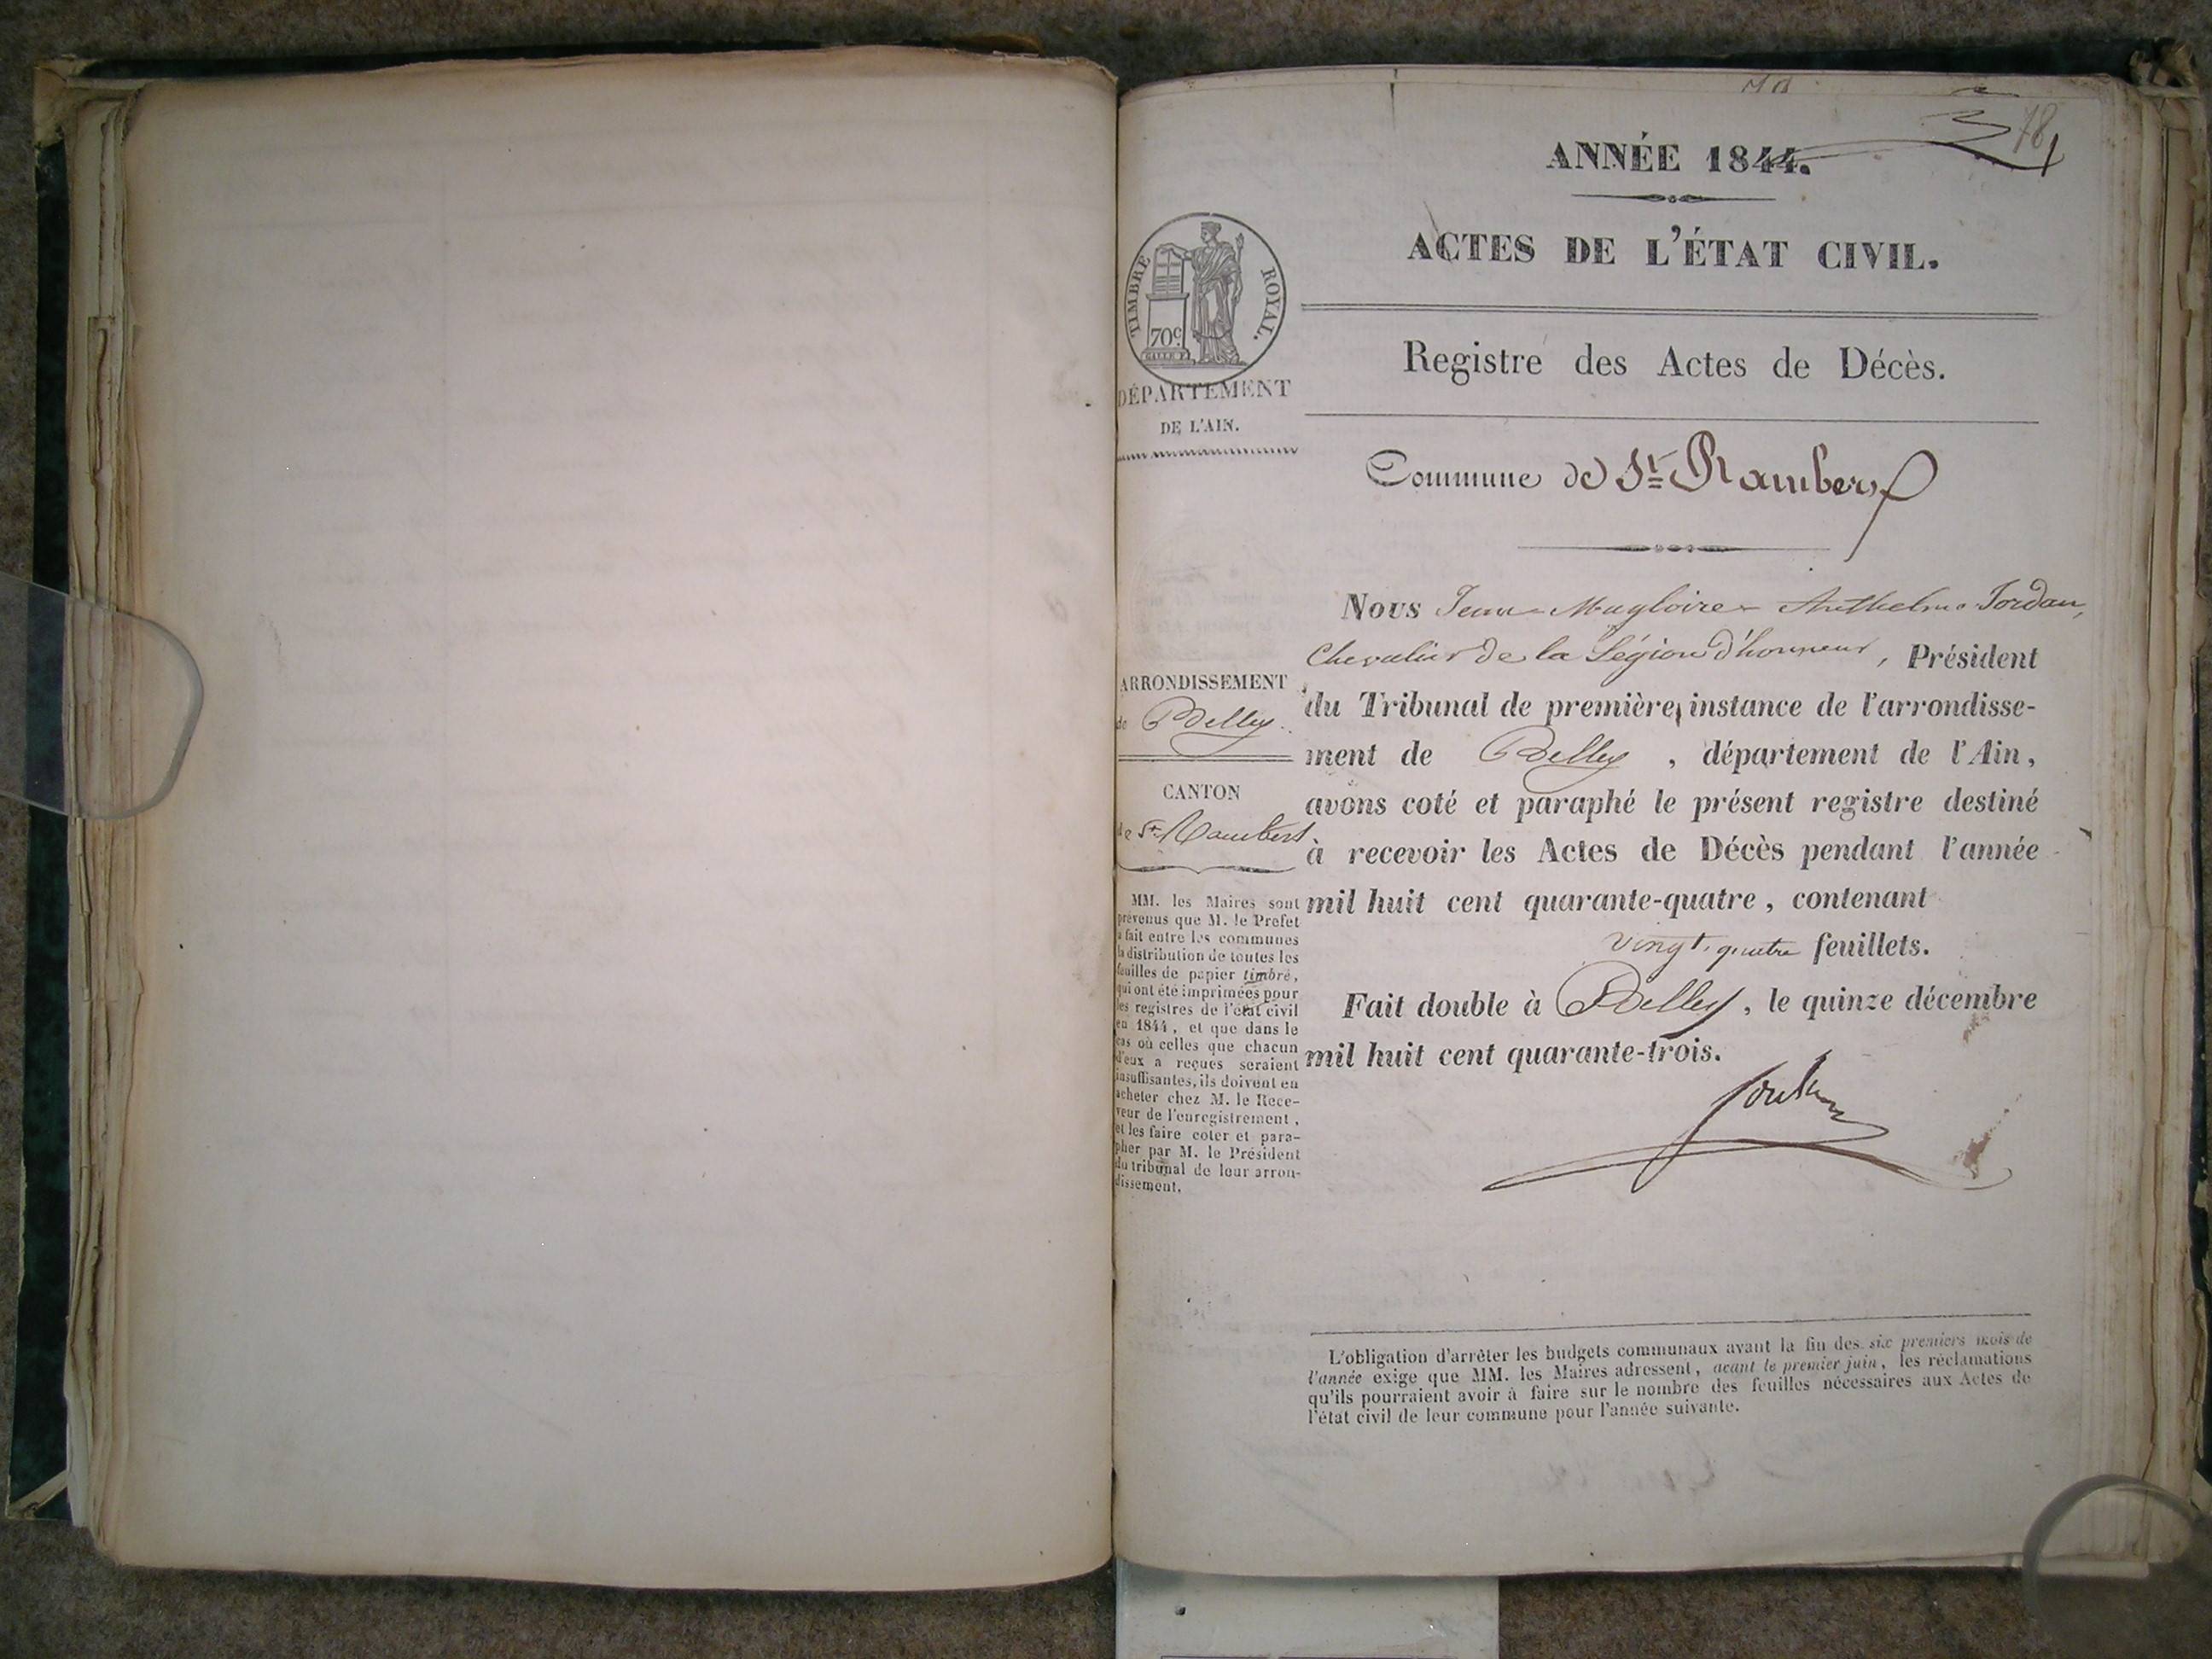 78
ANNÉE 1844.
ACTES DE L'ÉTAT CIVIL.
TIMBRE ROYAL.
70c
DÉPARTEMENT
DE L'AIN.
Registre des Actes de Décès.
Commune de St Rambert
Nous Jean-Magloire-Anthelme Jordan,
Chevalier de la Légion d'honneur, Président
du Tribunal de première instance de l'arrondisse-
ment de Belley, département de l'Ain,
avons coté et paraphé le présent registre destiné
à recevoir les Actes de Décès pendant l'année
mil huit cent quarante-quatre, contenant
vingt-quatre feuillets.
Fait double à Belley, le quinze décembre
mil huit cent quarante-trois.
ARRONDISSEMENT
de Belley.
CANTON
de St Rambert
MM. les Maires sont
prévenus que M. le Préfet
a fait entre les communes
la distribution de toutes les
feuilles de papier timbré,
qui ont été imprimées pour
les registres de l'état civil
en 1844, et que dans le
cas où celles que chacun
d'eux a reçues seraient
insuffisantes, ils doivent en
acheter chez M. le Rece-
veur de l'enregistrement,
et les faire coter et para-
pher par M. le Président
du tribunal de leur arron-
dissement.
L'obligation d'arrêter les budgets communaux avant la fin des six premiers mois de
l'année exige que MM. les Maires adressent, avant le premier juin, les réclamations
qu'ils pourraient avoir à faire sur le nombre des feuilles nécessaires aux Actes de
l'état civil de leur commune pour l'année suivante.